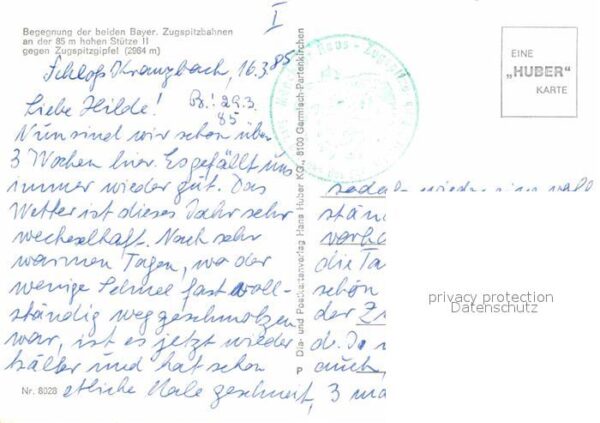 I
Begegnung der beiden Bayer. Zugspitzbahnen
an der 85 m hohen Stütze II
gegen Zugspitzgipfel (2964 m)
Schloß Kranzbach, 16.3.85
Liebe Hilde!
B.: 29.3.
85
Nun sind wir schon über
3 Wochen hier. Es gefällt uns
immer wieder gut. Das
Wetter ist dieses Jahr sehr
wechselhaft. Nach sehr
warmen Tagen, wo der
wenige Schnee fast voll-
ständig weggeschmolzen
war, ist es jetzt wieder
kälter und hat schon
etliche Male geschneit, 3 ma
Nr. 8028
P Dia- und Postkartenverlag Hans Huber KG., 8100 Garmisch-Partenkirchen
Haus - Zugspitz
EINE
„HUBER"
KARTE
sodaß wieder eine voll
stän
vorha
die Ta
schön
der Z
de. Do
auch,
privacy protection
Datenschutz